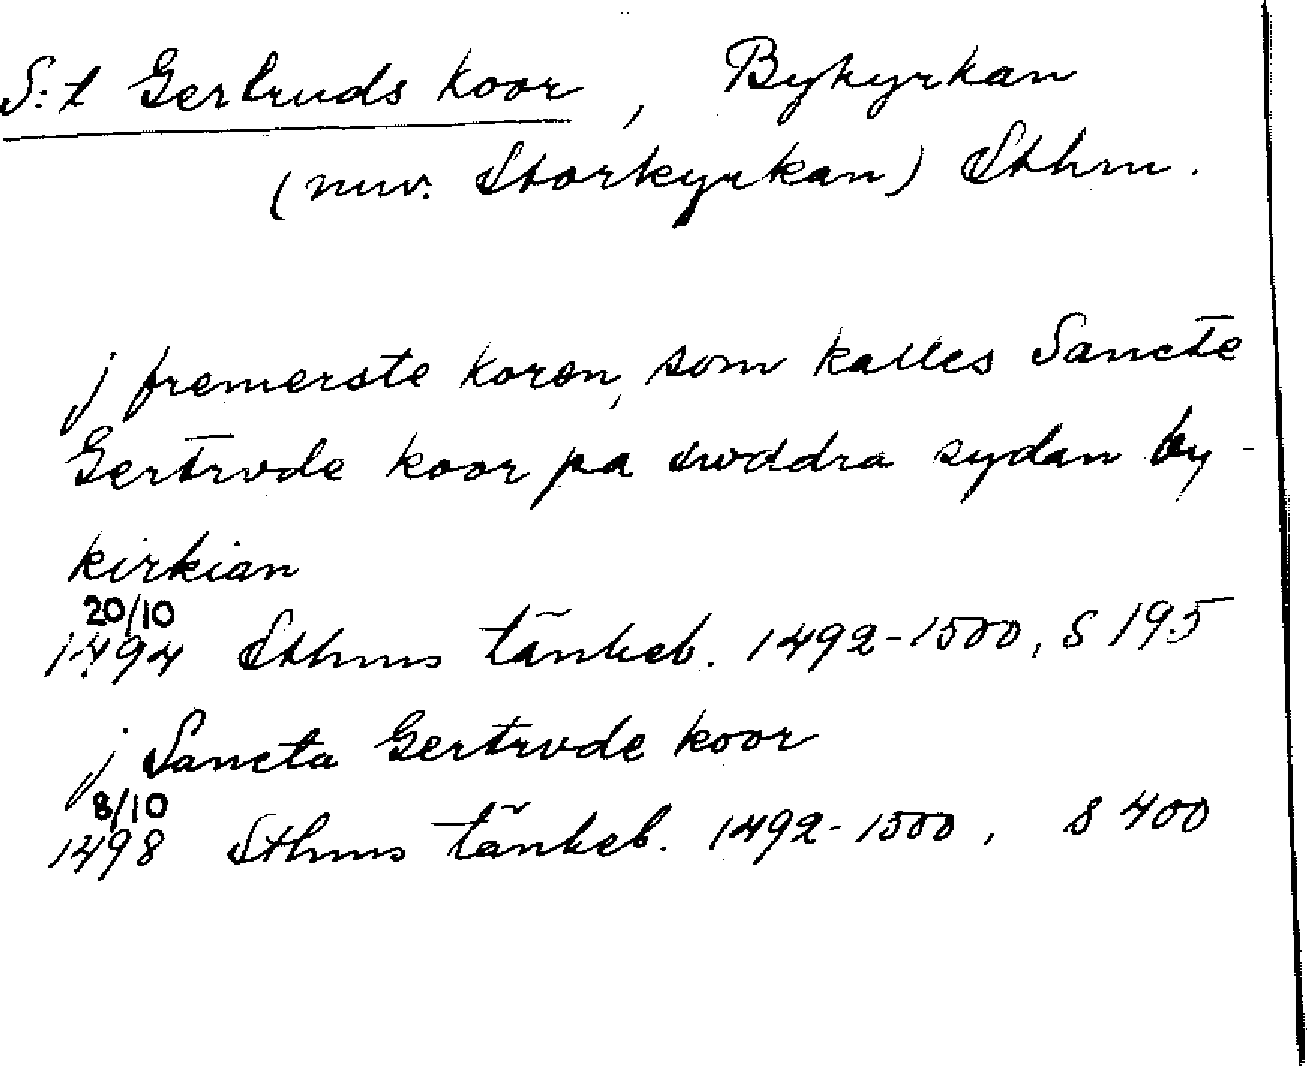 S:t Gertruds koor, Bykyrkan
(nuv. Storkyrkan) Sthm.
j fremerste koren, som kalles Sancte
Gertrvde koor pa swddra sydan by-
kirkian
20/10
1494 Sthms tänkeb. 1492-1500, s 195
j Sancta Gertrvde koor
8/10
1498 Sthms tänkeb. 1492-1500, s 400